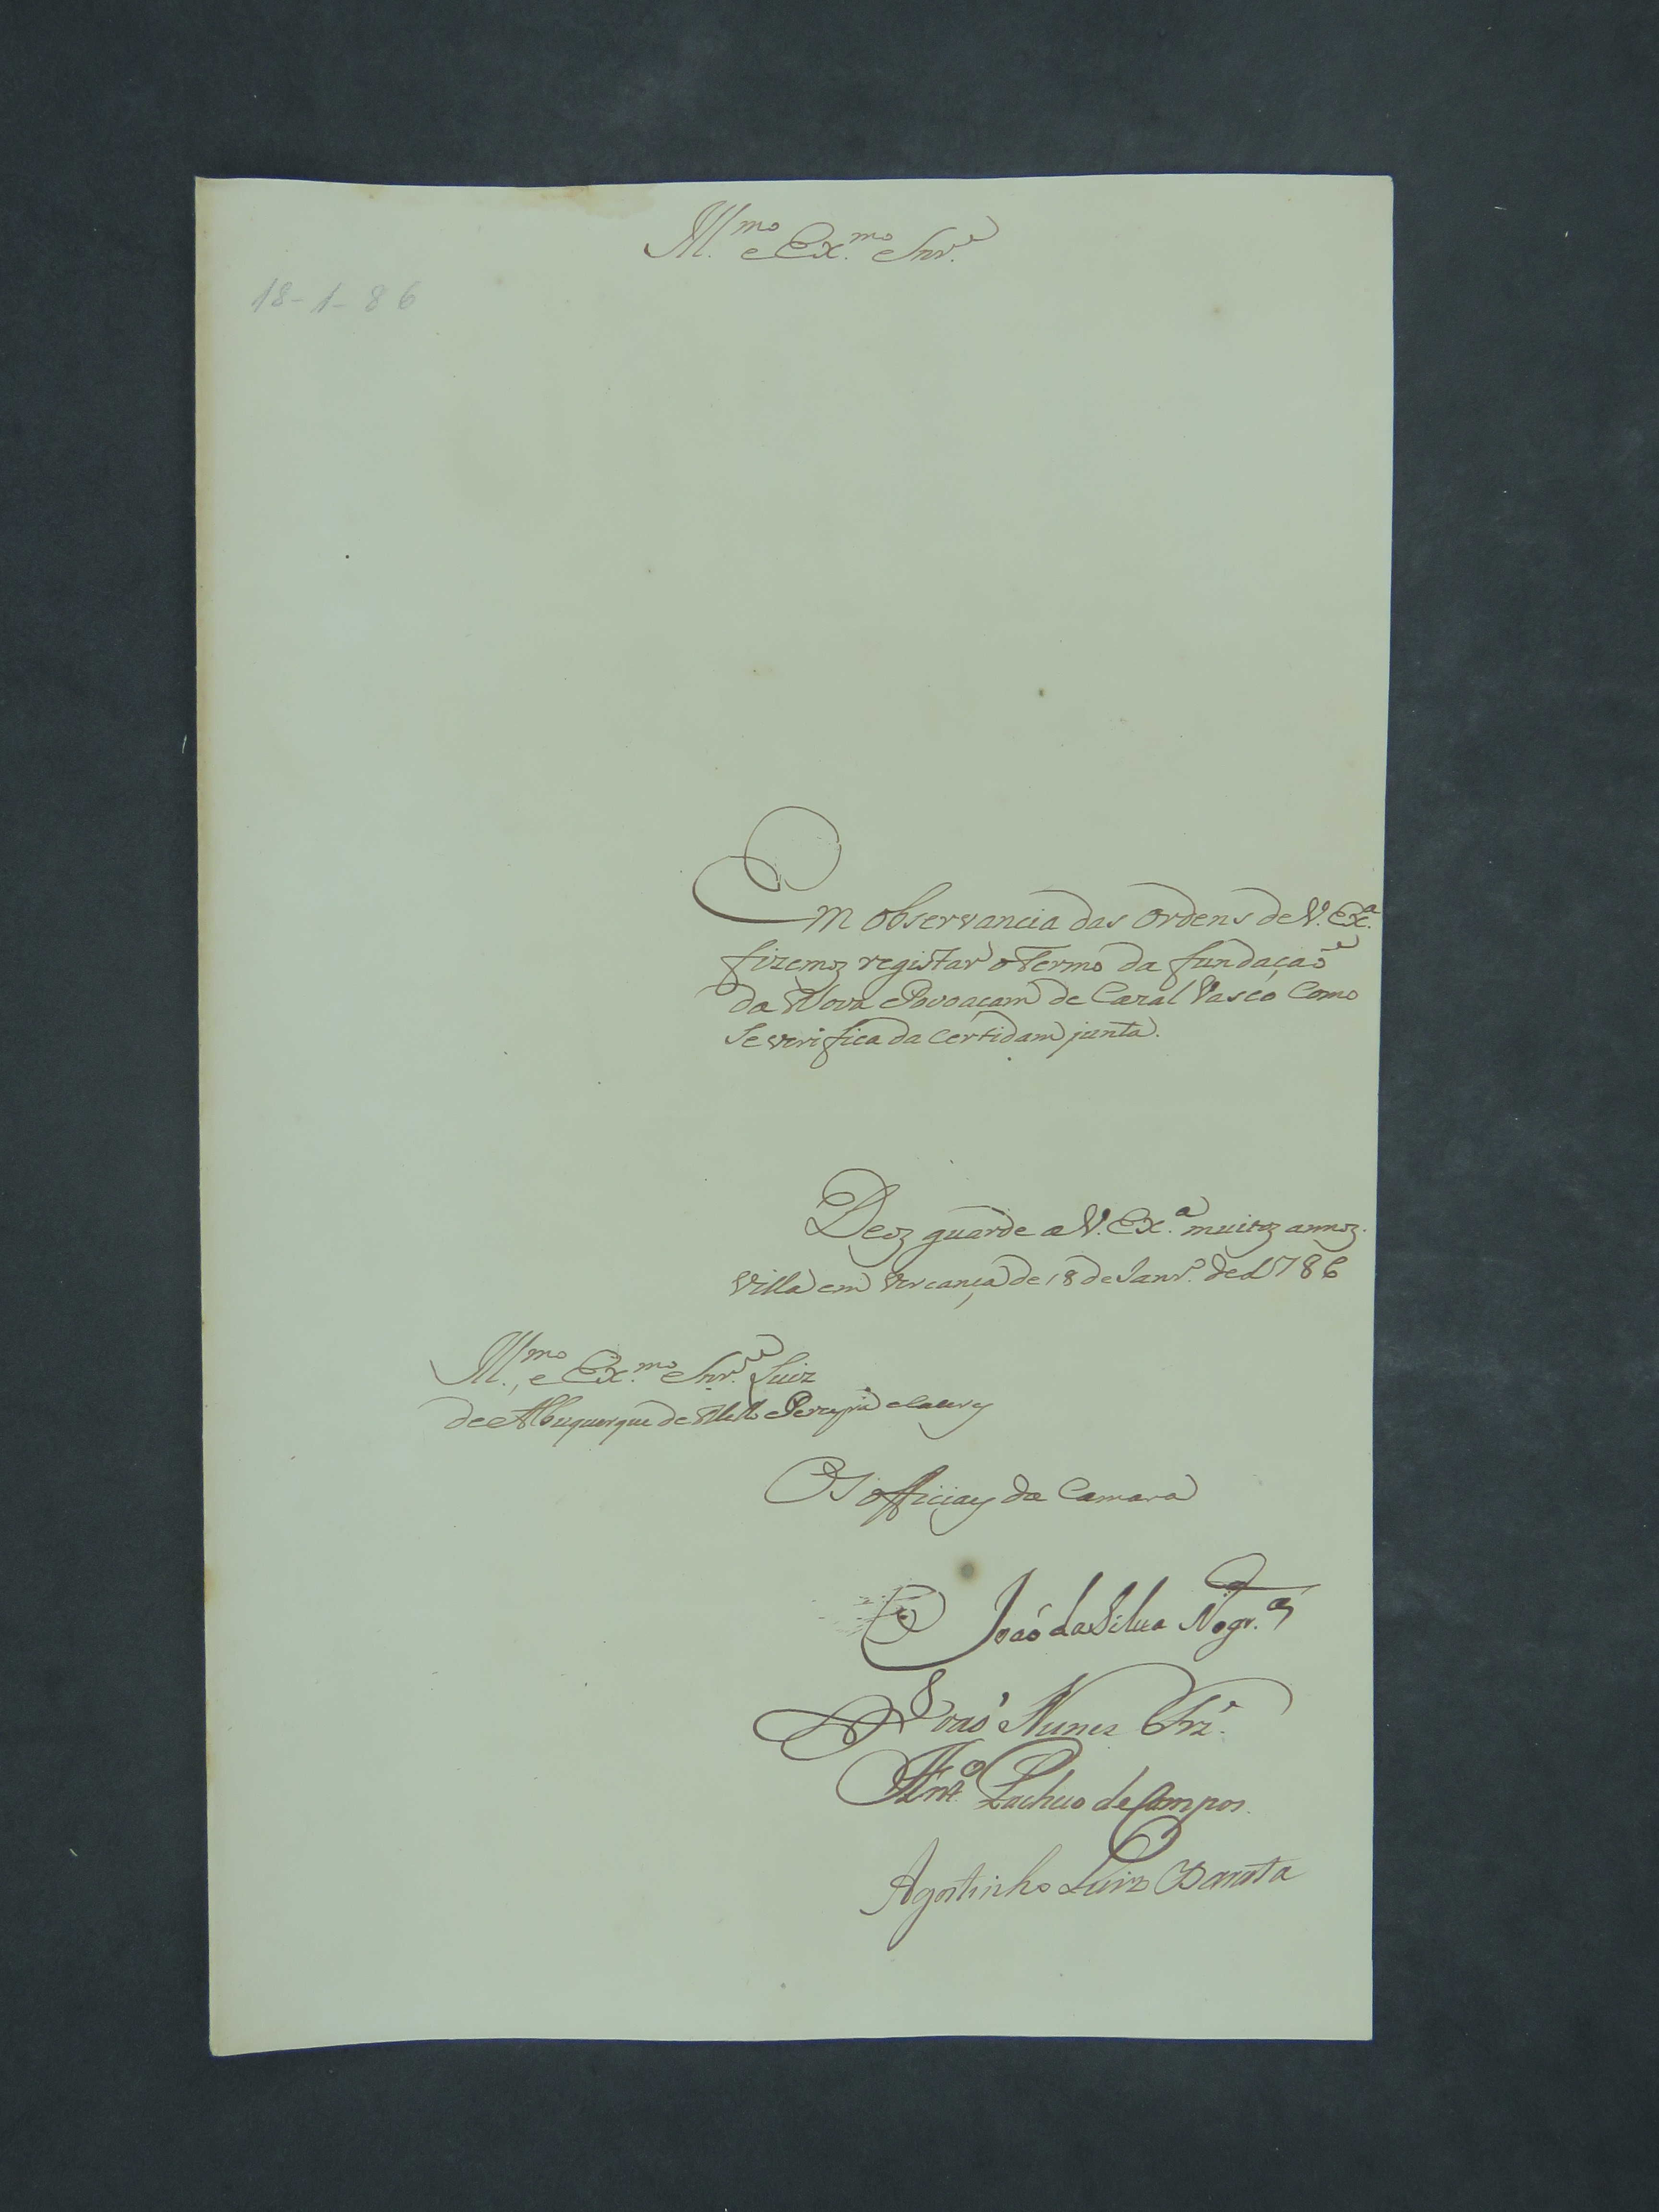 Ill.mo e Ex.mo Snr.
18-1-86
Em observancia das Ordens de V. Ex.a
fizemoz registar o Termo da fundaçaõ
da Nova Povoaçam de Cazal Vasco Como
Se verifica da Certidam junta.
Deoz guarde a V. Ex.a muitoz annoz.
Villa em Vereança de 18 de Janr.o de 1786
Ill.mo e Ex.mo Snr. Luiz
de Albuquerque de Mello Pereyra e Caceres
Os officiaes da Camara
Joaõ da Silva Nogr.a
Joaõ Nunes
Ant.o Pacheco de Campos
Agostinho Luiz Barata